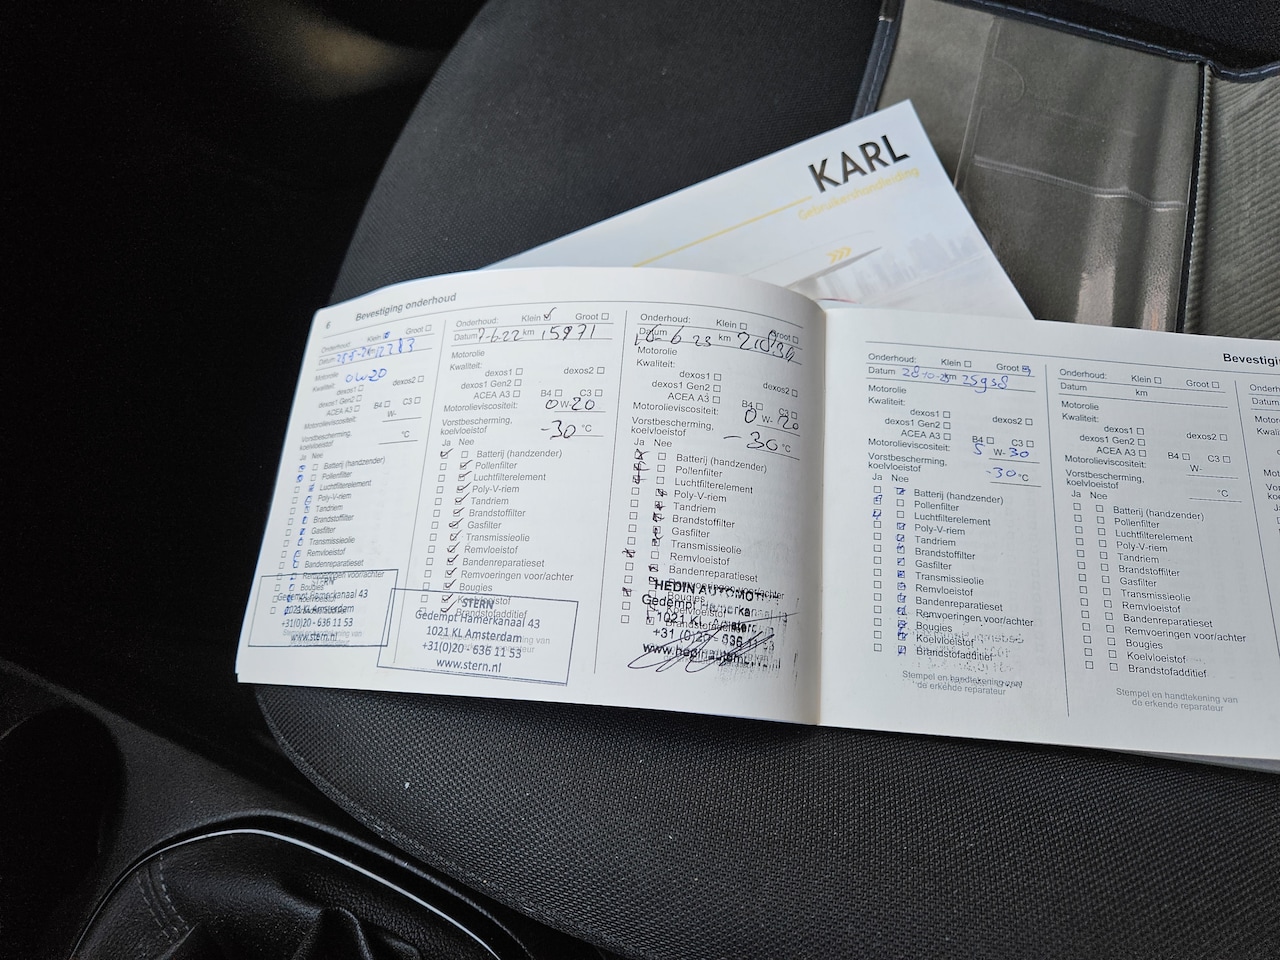 KARL
Gebruikershandleiding
6 Bevestiging onderhoud
Onderhoud: Klein Groot
Datum 12283
Motorolie 0W-20
Kwaliteit:
dexos1
dexos1 Gen2
ACEA A3 B4 C3
Motorolieviscositeit: W-
Vorstbescherming,
koelvloeistof °C
Ja Nee
Batterij (handzender)
Pollenfilter
Luchtfilterelement
Poly-V-riem
Tandriem
Brandstoffilter
Gasfilter
Transmissieolie
Remvloeistof
Bandenreparatieset
Remvoeringen voor/achter
Bougies
STERN
Gedempt Hamerkanaal 43
1021 KL Amsterdam
+31(0)20 - 636 11 53
www.stern.nl
Onderhoud: Klein Groot
Datum 7-6-22 km 15971
Motorolie
Kwaliteit:
dexos1 dexos2
dexos1 Gen2
ACEA A3 B4 C3
Motorolieviscositeit: 0 W-20
Vorstbescherming,
koelvloeistof -30 °C
Ja Nee
Batterij (handzender)
Pollenfilter
Luchtfilterelement
Poly-V-riem
Tandriem
Brandstoffilter
Gasfilter
Transmissieolie
Remvloeistof
Bandenreparatieset
Remvoeringen voor/achter
Bougies
Koelvloeistof
Brandstofadditief
STERN
Gedempt Hamerkanaal 43
1021 KL Amsterdam
+31(0)20 - 636 11 53
www.stern.nl
Onderhoud: Klein Groot
Datum km
Motorolie
Kwaliteit:
dexos1 dexos2
dexos1 Gen2
ACEA A3 B4 C3
Motorolieviscositeit: 0 W- 20
Vorstbescherming,
koelvloeistof -30 °C
Ja Nee
Batterij (handzender)
Pollenfilter
Luchtfilterelement
Poly-V-riem
Tandriem
Brandstoffilter
Gasfilter
Transmissieolie
Remvloeistof
Bandenreparatieset
Bougies
Koelvloeistof
HEDIN AUTOMOT
Gedempt Hamerka
1021 KL Amster
+31 (0)20 - 636 11
www.hedinautomo
Bevestigin
Onderhoud: Klein Groot
Datum 28-10- km 25958
Motorolie
Kwaliteit:
dexos1 dexos2
dexos1 Gen2
ACEA A3 B4 C3
Motorolieviscositeit: 5 W-30
Vorstbescherming,
koelvloeistof -30 °C
Ja Nee
Batterij (handzender)
Pollenfilter
Luchtfilterelement
Poly-V-riem
Tandriem
Brandstoffilter
Gasfilter
Transmissieolie
Remvloeistof
Bandenreparatieset
Remvoeringen voor/achter
Bougies
Koelvloeistof
Brandstofadditief
Stempel en handtekening van
de erkende reparateur
Onderhoud: Klein Groot
Datum km
Motorolie
Kwaliteit:
dexos1 dexos2
dexos1 Gen2
ACEA A3 B4 C3
Motorolieviscositeit: W-
Vorstbescherming,
koelvloeistof °C
Ja Nee
Batterij (handzender)
Pollenfilter
Luchtfilterelement
Poly-V-riem
Tandriem
Brandstoffilter
Gasfilter
Transmissieolie
Remvloeistof
Bandenreparatieset
Remvoeringen voor/achter
Bougies
Koelvloeistof
Brandstofadditief
Stempel en handtekening van
de erkende reparateur